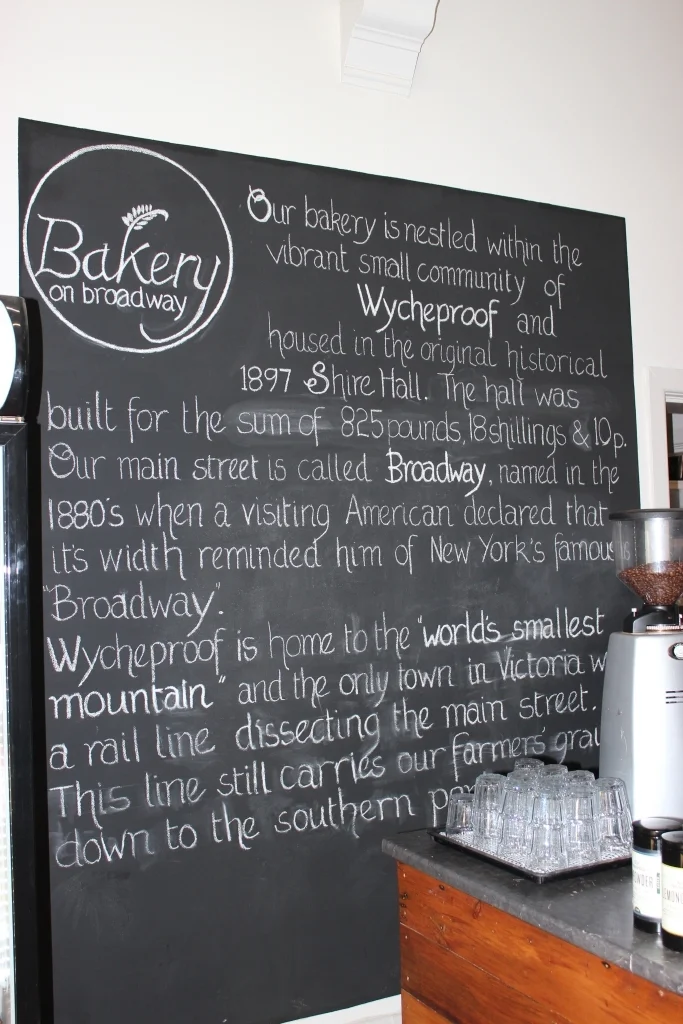 Bakery
on broadway
Our bakery is nestled within the
vibrant small community of
Wycheproof and
housed in the original historical
1897 Shire Hall. The hall was
built for the sum of 825 pounds, 18 shillings & 10p.
Our main street is called Broadway, named in the
1880's when a visiting American declared that
it's width reminded him of New York's famous
"Broadway".
Wycheproof is home to the "world's smallest
mountain" and the only town in Victoria w
a rail line dissecting the main street.
This line still carries our farmers' grai
down to the southern po